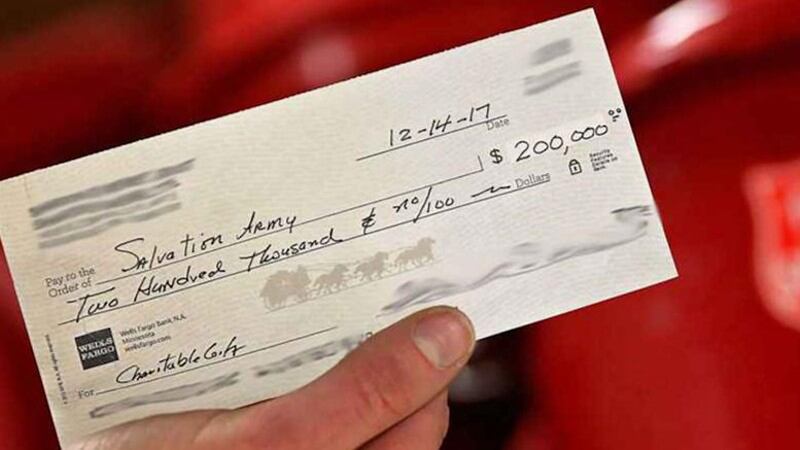 12-14-17
Date
$ 200,000 00
Security
Features
Details on
Back.
Pay to the
Order of
Salvation Army
Two Hundred Thousand & no/100
Dollars
WELLS
FARGO
Wells Fargo Bank, N.A.
Minnesota
wellsfargo.com
For Charitable Gift